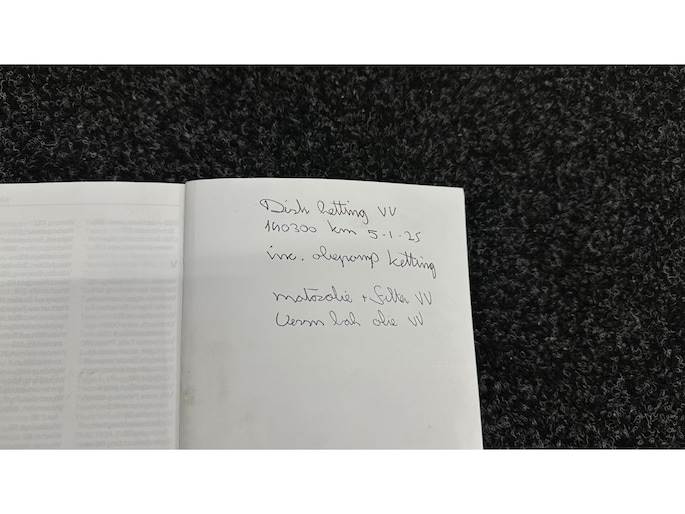 Distr ketting VV
140300 km 5-1-25
inc. oliepomp ketting
motorolie + filter VV
Versn bak olie VV